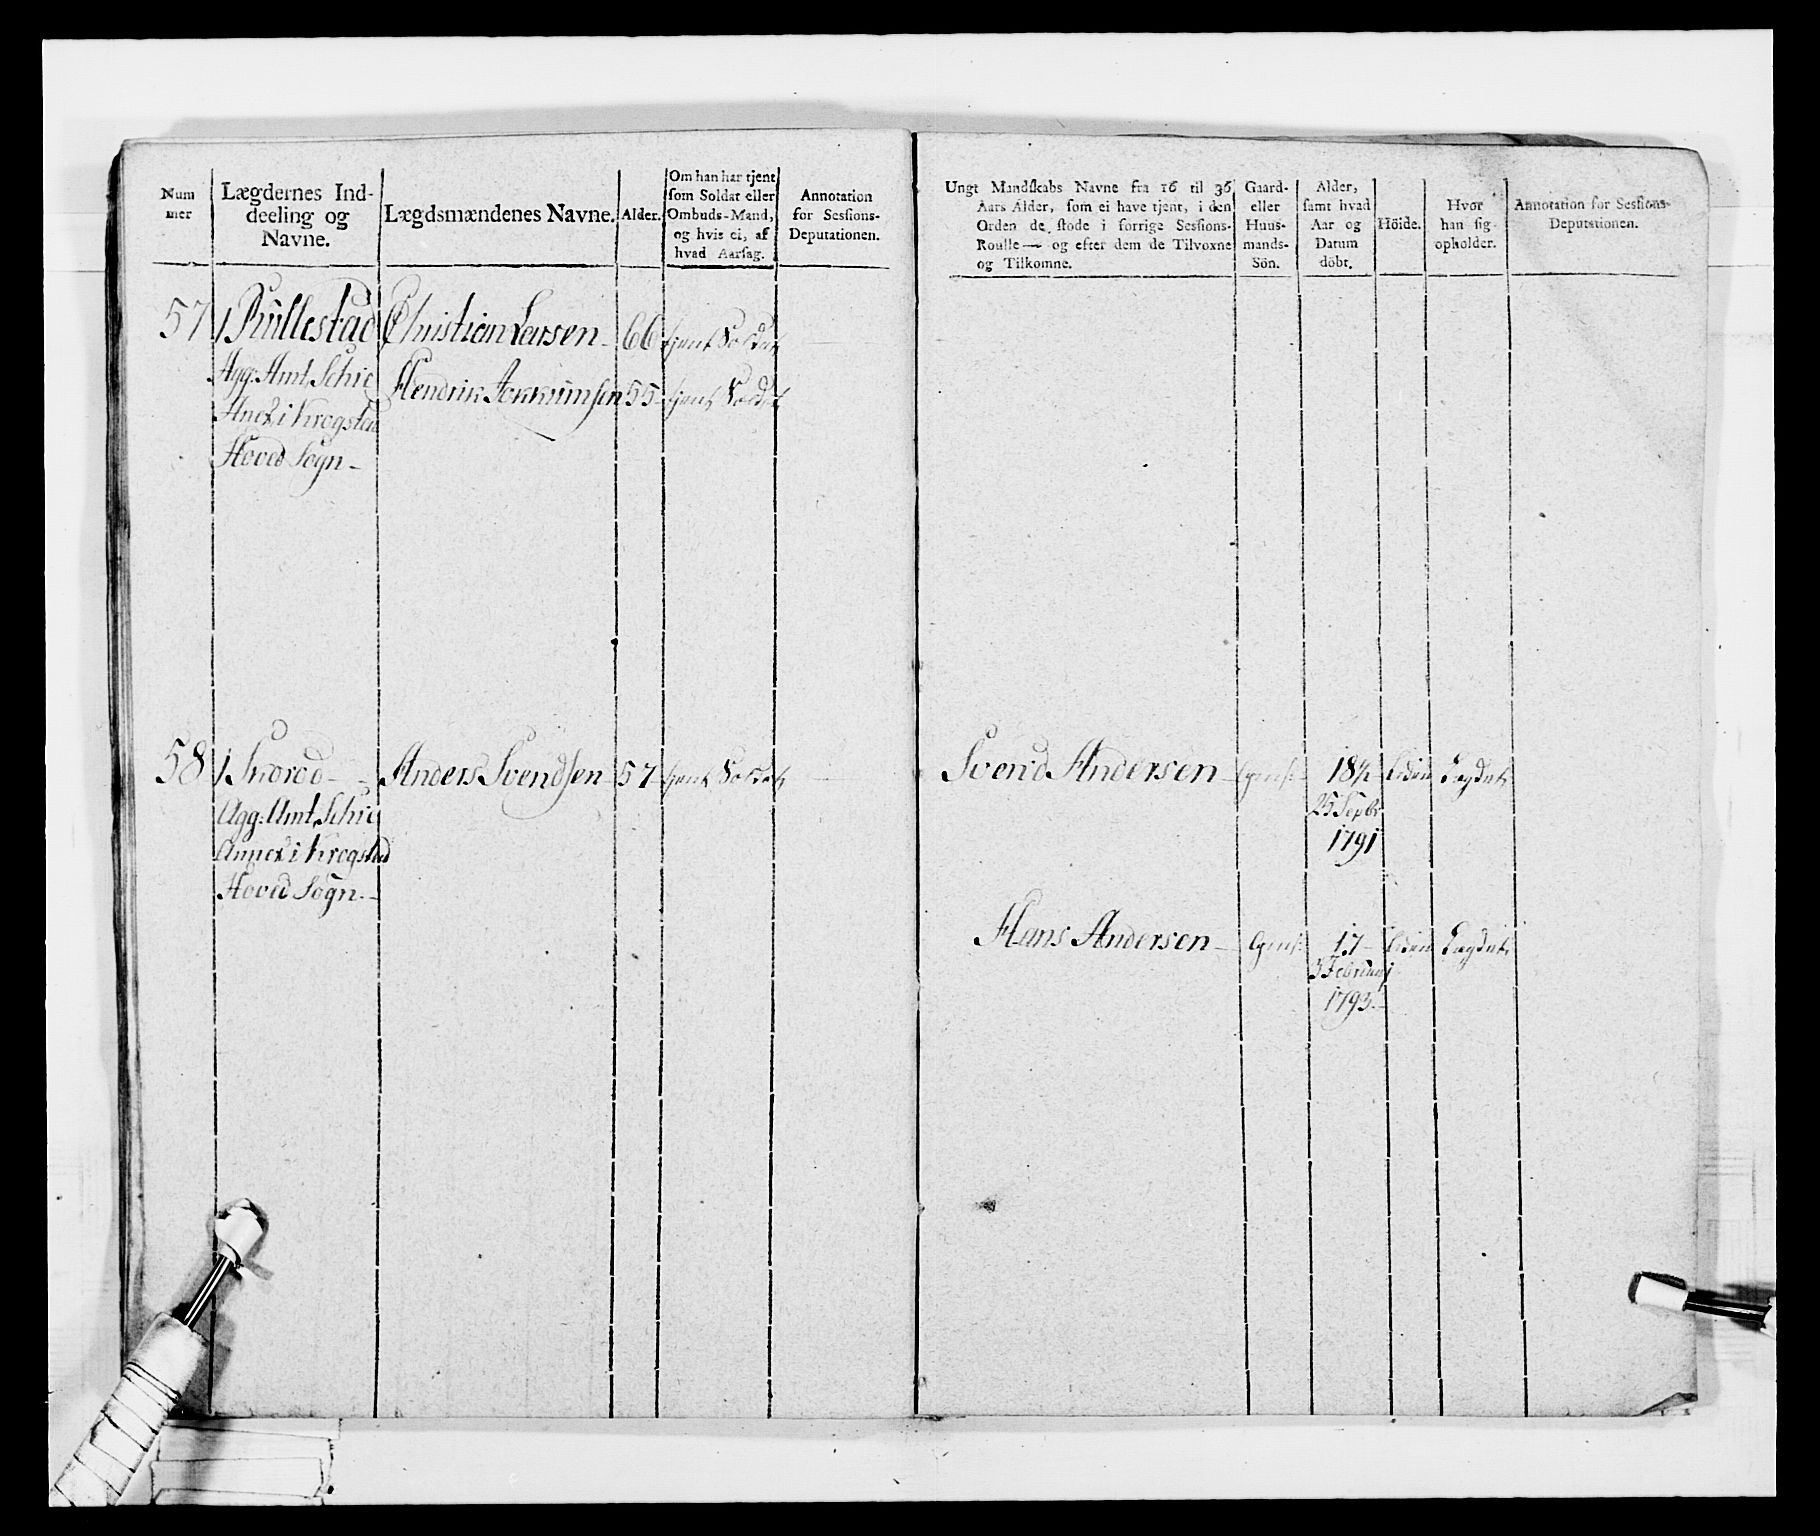 Num
mer
Lægdernes Ind-
deeling og
Navne.
Lægdsmændenes Navne.
Alder.
Om han har tjent
som Soldat eller
Ombuds-Mand,
og hvis ei, af
hvad Aarsag.
Annotation
for Sessions-
Deputationen.
57
Christian Larsen
66
tjent Soldat
Agg: Amt, Schie
Hendrik
55
tjent Soldat
Anex i Krogstad
Hoved Sogn
58
Anders Svendsen
57
tjent Soldat
Agg: Amt, Schie
Annex i Krogstad
Hoved Sogn
Ungt Mandskabs Navne fra 16 til 36
Aars Alder, som ei have tjent, i den
Orden de stode i forrige Sessions-
Roulle — og efter dem de Tilvoxne
og Tilkomne.
Gaard-
eller
Huus-
mands-
Sön.
Alder,
samt hvad
Aar og
Datum
döbt.
Höide.
Hvor
han sig
opholder.
Annotation for Sessions-
Deputationen.
Svend Andersen
18½
Lægdet
25 Septbr
1791
Hans Andersen
17
Lægdet
3 Februarj
1793